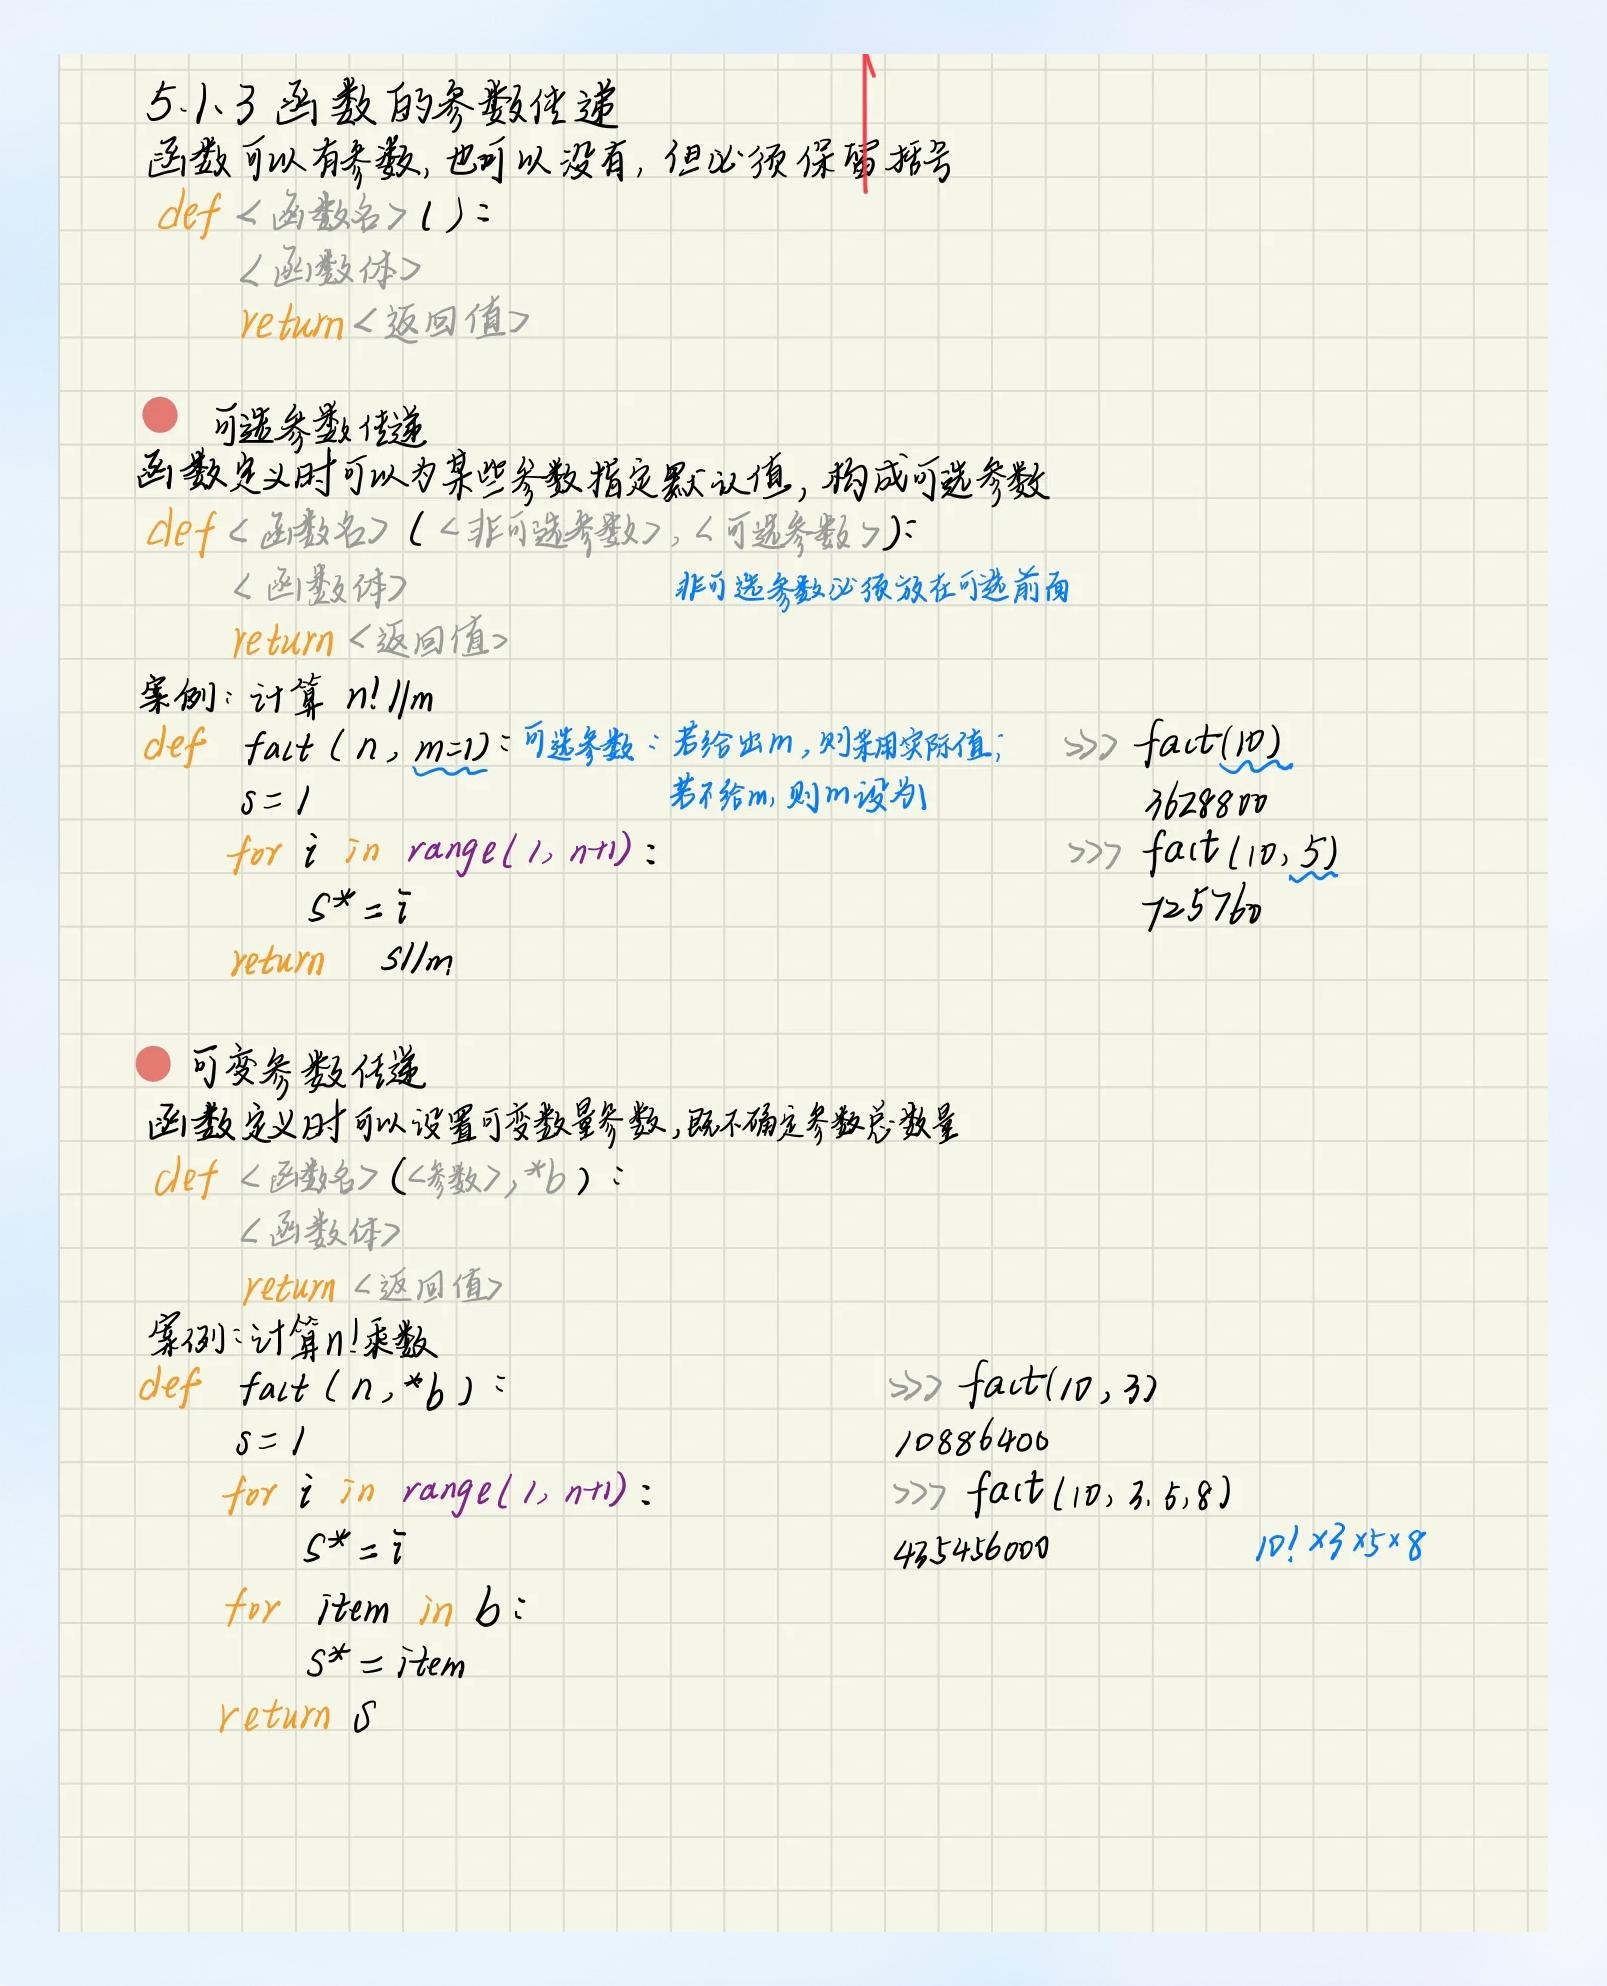 5.1.3 函数的参数传递
函数可以有参数,也可以没有,但必须保留括号
def <函数名>( ):
<函数体>
return <返回值>
可选参数传递
函数定义时可以为某些参数指定默认值,构成可选参数
def <函数名> ( <非可选参数>, <可选参数> ):
<函数体> 非可选参数必须放在可选前面
return <返回值>
案例: 计算 n!//m
def fact ( n, m=1): 可选参数: 若给出m,则采用实际值; >>> fact(10)
s=1 若不给m,则m设为1 3628800
for i in range(1, n+1): >>> fact (10, 5)
s*=i 725760
return s//m
可变参数传递
函数定义时可以设置可变数量参数,既不确定参数总数量
def <函数名> (<参数>, *b ):
<函数体>
return <返回值>
案例:计算n!乘数
def fact ( n, *b ): >>> fact(10, 3)
s=1 10886400
for i in range(1, n+1): >>> fact (10, 3, 5, 8)
s*=i 435456000 10! ×3×5×8
for item in b:
s*=item
return s